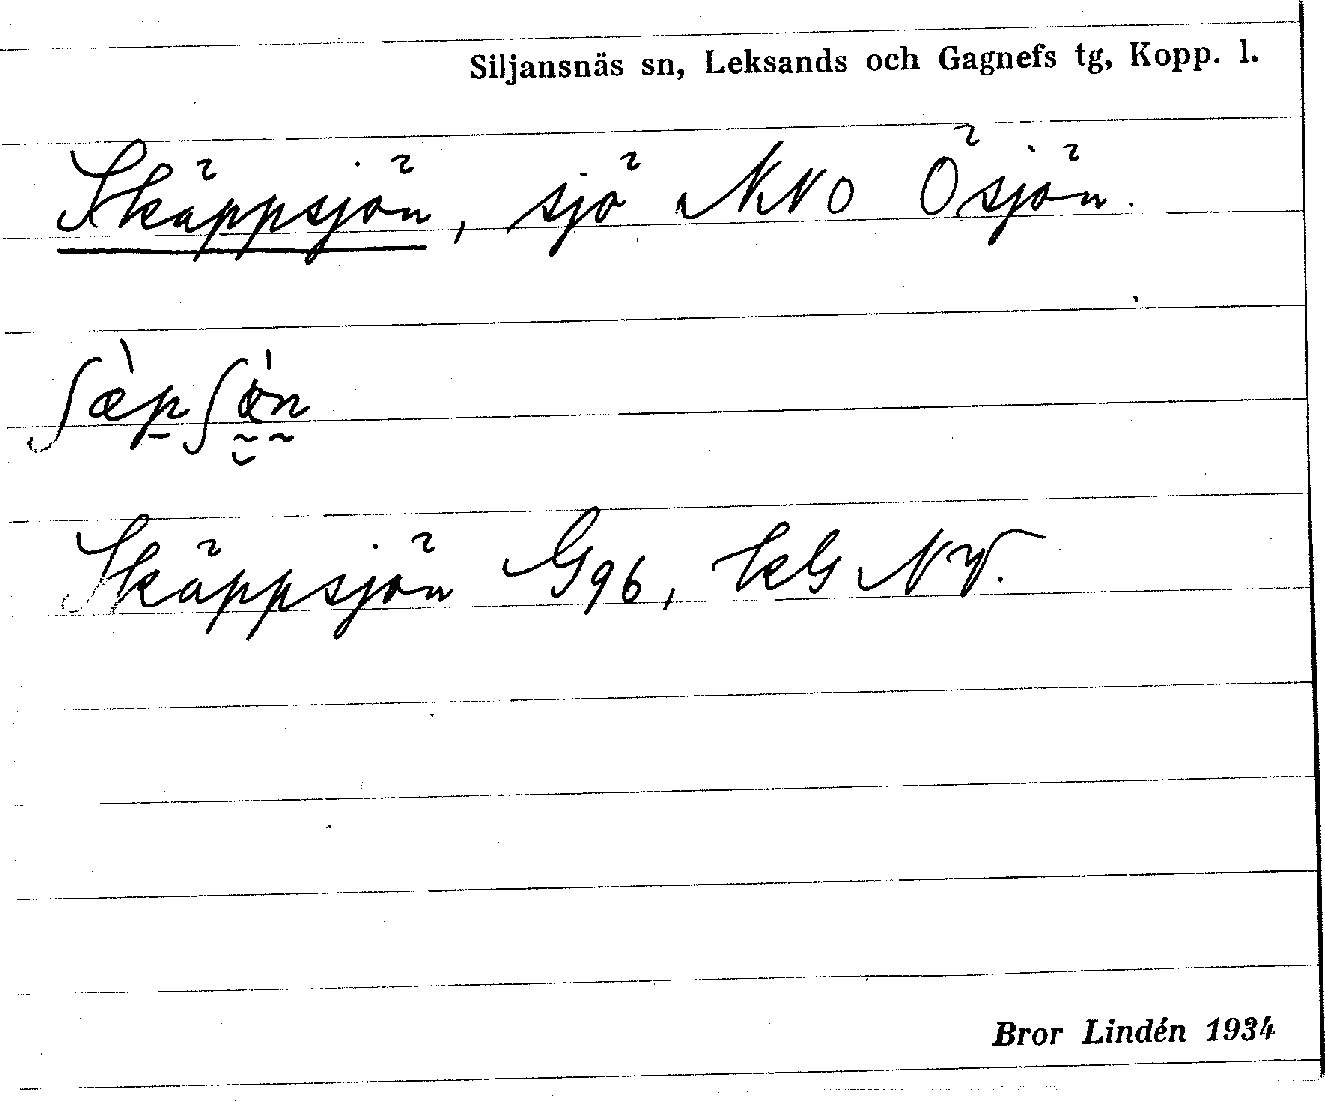 Siljansnäs sn, Leksands och Gagnefs tg, Kopp. l.
Skäppsjön, sjö NNO Ösjön.
ʃæ̀pʃ
Skäppsjön G96, kG NV.
Bror Lindén 1934